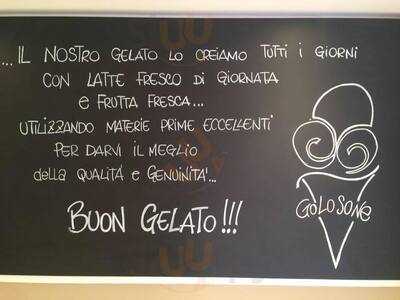 ...IL NOSTRO GELATO LO CREIAMO TUTTI i GIORNI
CON LATTE FRESCO Di GIORNATA
e FRUTTA FRESCA...
UTILIZZANDO MATERIE PRIME ECCELLENTI
PER DARVI IL MEGLIO
della QUALITÁ e GENUINITA'...
BUON GELATO!!!
GOLOSONE